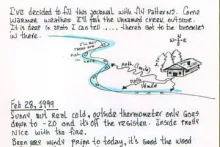 I've decided to fill this journal with fly patterns. Come
warmer weather I'll fish the unnamed creek outside.
It is deep in spots I can tell .... theres got to be brookies
in there.
path
House
Feb 28, 1999
Sunny but real cold, outside thermometer only goes
down to -20 and its off the register. Inside pretty
nice with the fire.
Been very windy prior to today, it's good the wood